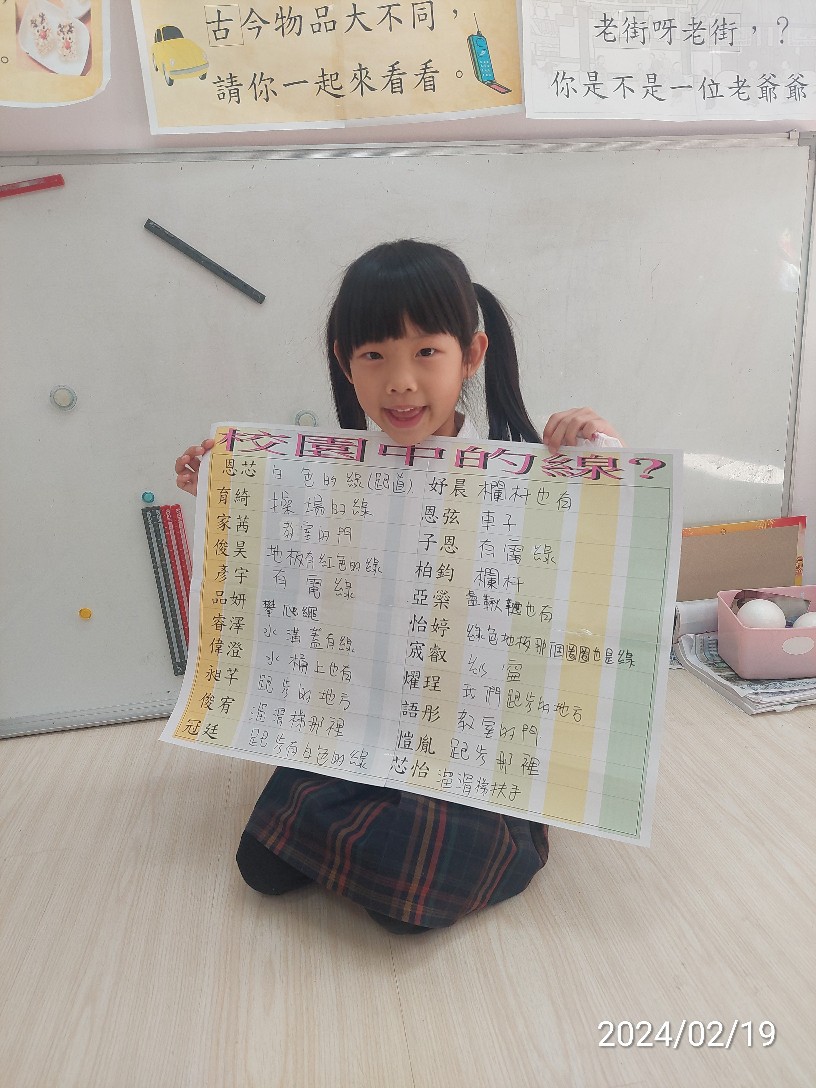 古今物品大不同，
請你一起來看看。
老街呀老街，？
你是不是一位老爺爺
。
校園中的線？
恩芯 白色的線(跑道)
育綺 操場的線
家苒 教室的門
俊昊 地板有紅色的線
彥宇 有電線
品妍 攀爬繩
睿澤 水溝蓋有線
偉澄 水桶上也有
昶芊 跑步的地方
俊宥 溜滑梯那裡
冠廷 跑步有白色的線
妤晨 欄杆也有
恩弦 車子
子恩 有電線
柏鈞 欄杆
亞榮 盪鞦韆也有
怡婷 綠色地板那個圈圈也是線
宬叡 紗窗
燿珵 我們跑步的地方
語彤 教室的門
愷胤 跑步那裡
芯怡 溜滑梯扶手
2024/02/19